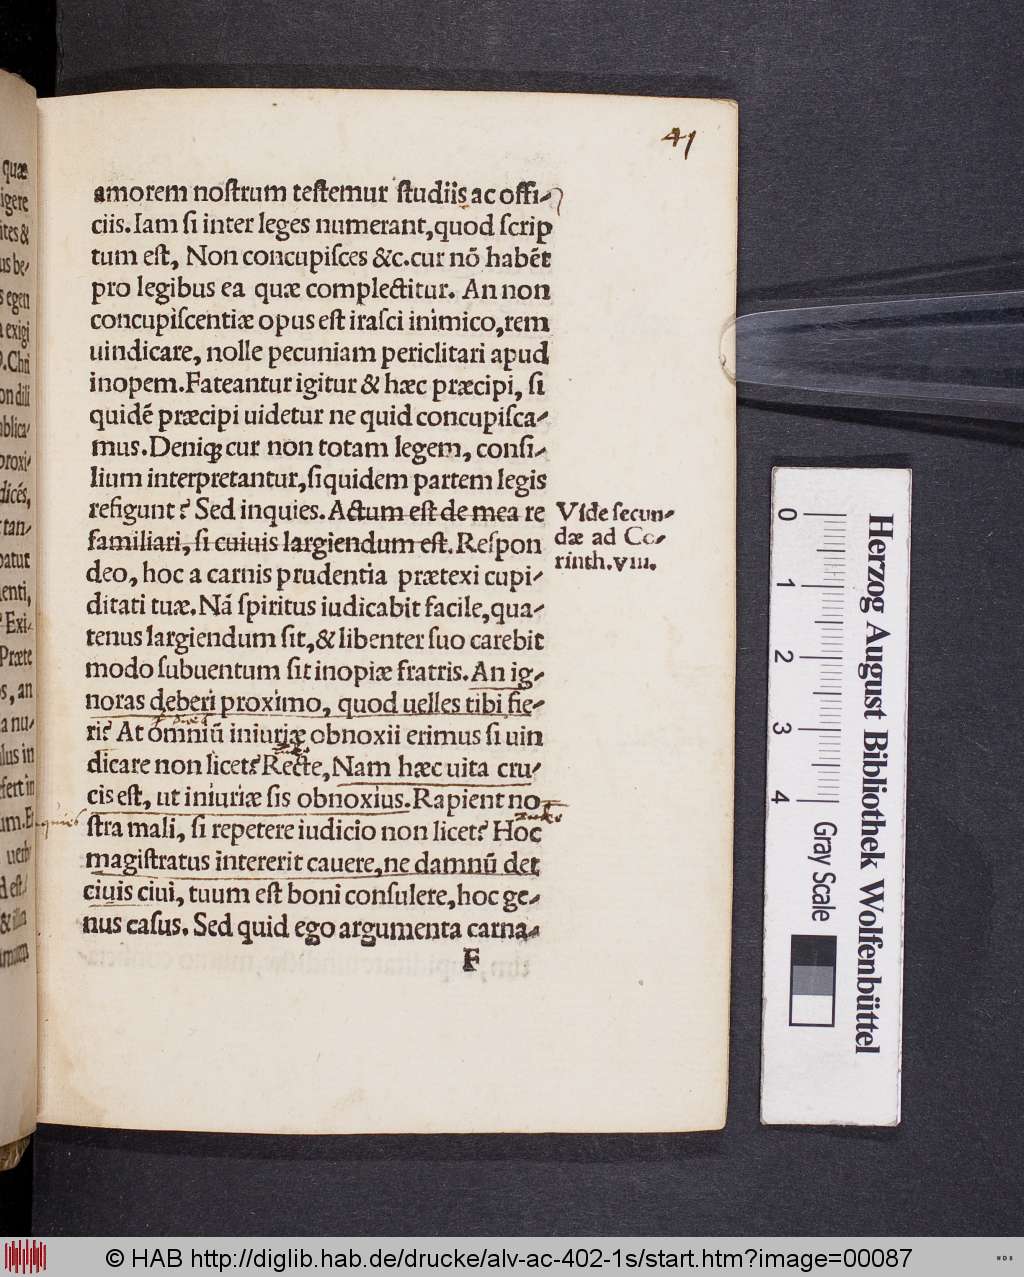 41
amorem noſtrum teſtemur ſtudiis ac offi-
ciis. Iam ſi inter leges numerant, quod ſcrip
tum eſt, Non concupiſces &c. cur nõ habẽt
pro legibus ea quæ complectitur. An non
concupiſcentiæ opus eſt iraſci inimico, rem
uindicare, nolle pecuniam periclitari apud
inopem. Fateantur igitur & hæc præcipi, ſi
quidẽ præcipi uidetur ne quid concupiſca-
mus. Deniq; cur non totam legem, conſi-
lium interpretantur, ſiquidem partem legis
refigunt? Sed inquies. Actum eſt de mea re
familiari, ſi cuiuis largiendum eſt. Reſpon
deo, hoc a carnis prudentia prætexi cupi-
ditati tuæ. Nã ſpiritus iudicabit facile, qua-
tenus largiendum ſit, & libenter ſuo carebit
modo ſubuentum ſit inopiæ fratris. An ig-
noras deberi proximo, quod uelles tibi fie-
ri? At omniũ iniuriæ obnoxii erimus ſi uin
dicare non licet? Recte, Nam hæc uita cru-
cis eſt, ut iniuriæ ſis obnoxius. Rapient no-
ſtra mali, ſi repetere iudicio non licet? Hoc
magiſtratus intererit cauere, ne damnũ det
ciuis ciui, tuum eſt boni conſulere, hoc ge-
nus caſus. Sed quid ego argumenta carna-
F
Vide ſecun-
dæ ad Co-
rinth. VIII.
quæ
igere
ites &
us be-
s egen
exigi
Chri
on dili
blica-
proxi-
dicẽs,
tan-
batur
enti,
? Exi-
Præte
s, an
a nu-
lus in
efert in
um. E
uerb
d eſt
& illa
0 1 2 3 4
Gray Scale
Herzog August Bibliothek Wolfenbüttel
© HAB http://diglib.hab.de/drucke/alv-ac-402-1s/start.htm?image=00087